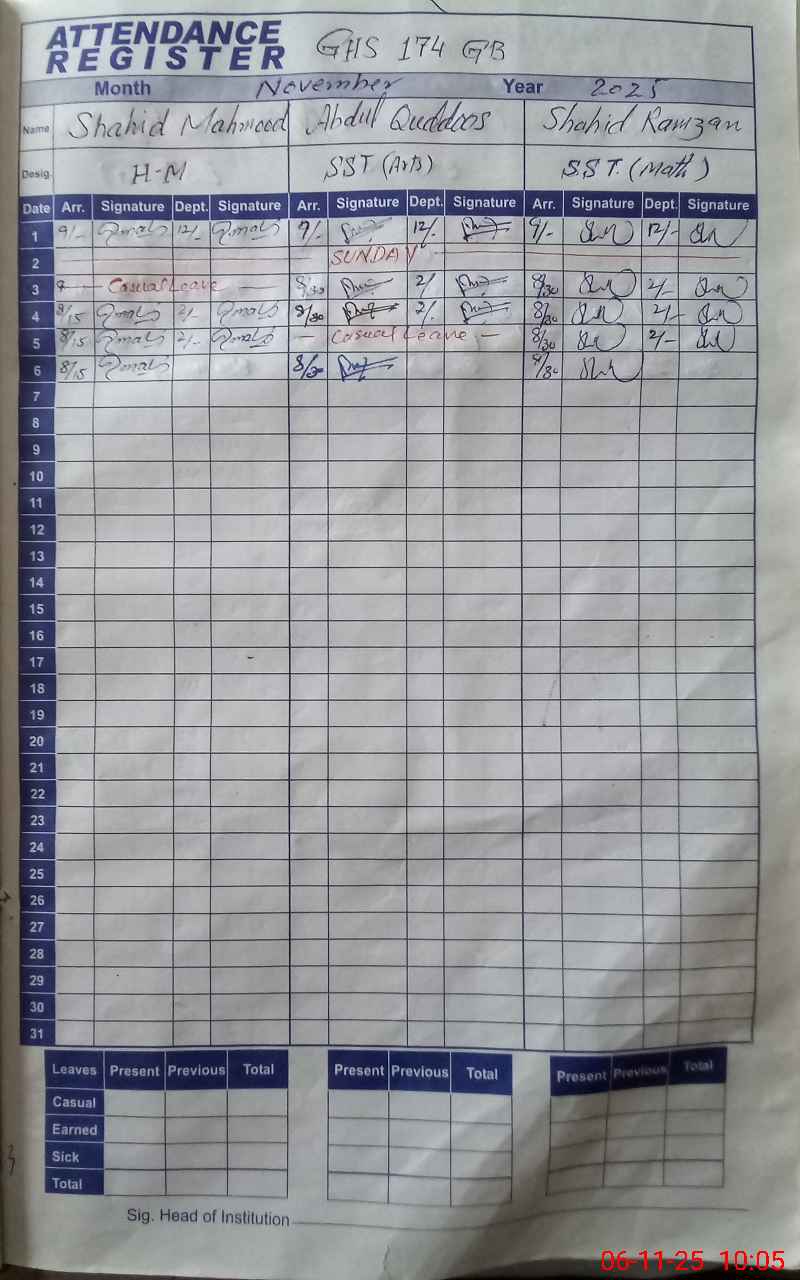 ATTENDANCE REGISTER GHS 174 GB
Month November Year 2025
Name Shahid Mahmood Abdul Quddoos Shahid Ramzan
Desig. H-M SST (Arts) S.S.T. (Math)
Date Arr. Signature Dept. Signature Arr. Signature Dept. Signature Arr. Signature Dept. Signature
1 9/- 12/- 9/- 12/- 9/- 12/-
2 SUNDAY
3 Casual Leave 8/30 2/- 8/30 2/-
4 8/15 2/- 8/30 2/- 8/30 2/-
5 8/15 2/- Casual Leave 8/30 2/-
6 8/15 8/30
7
8
9
10
11
12
13
14
15
16
17
18
19
20
21
22
23
24
25
26
27
28
29
30
31
Leaves Present Previous Total Present Previous Total Present Previous Total
Casual
Earned
Sick
Total
Sig. Head of Institution
06-11-25 10:05